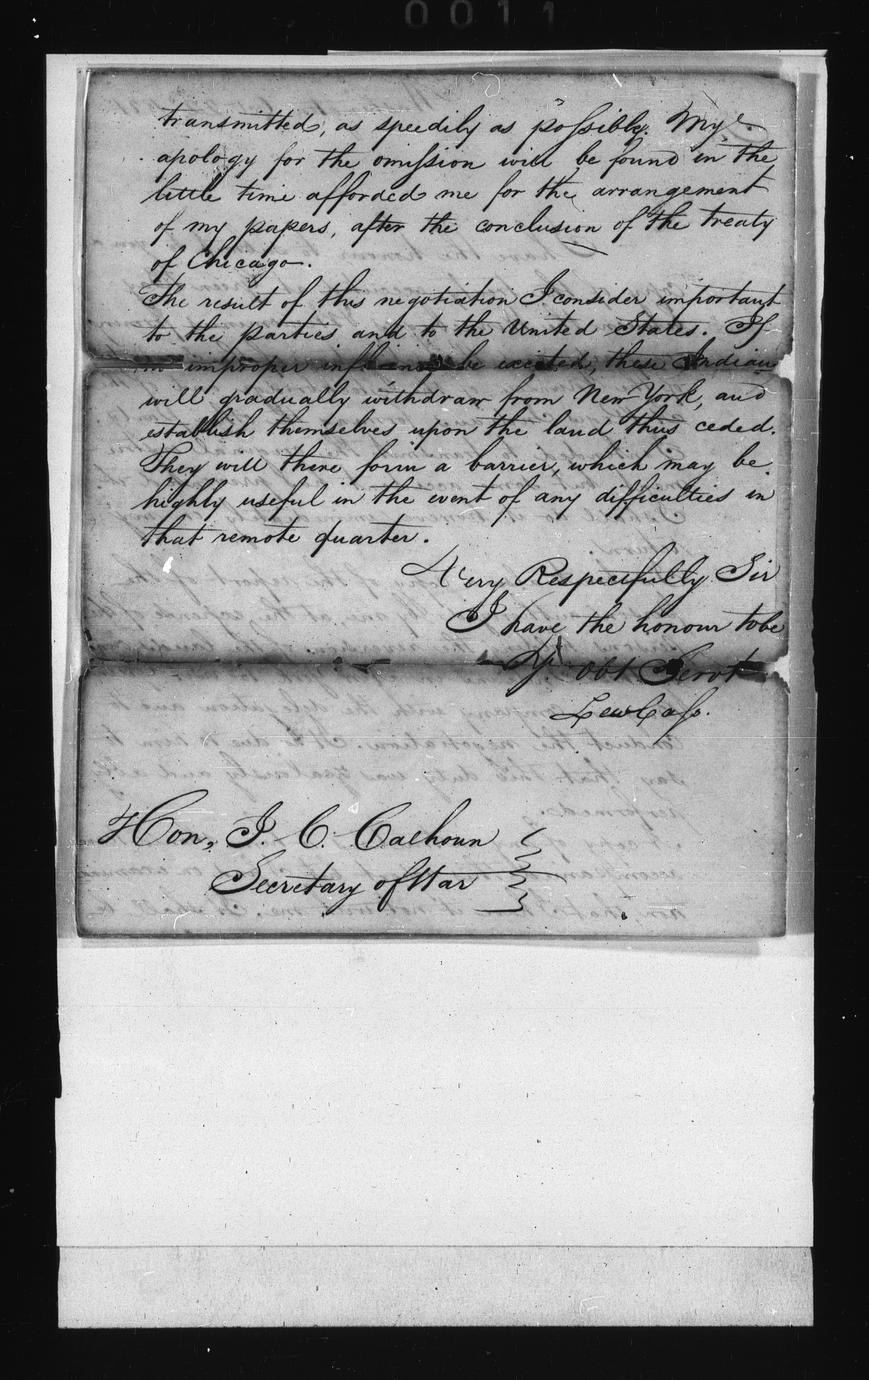 0011
transmitted, as speedily as possible. My
apology for the omission will be found in the
little time afforded me for the arrangement
of my papers, after the conclusion of the treaty
of Chicago.
The result of this negotiation I consider important
to the parties and to the United States. If
no improper influence be excited, these Indians
will gradually withdraw from New York, and
establish themselves upon the land thus ceded.
They will there form a barrier, which may be
highly useful in the event of any difficulties in
that remote quarter.
Very Respectfully Sir
I have the honour to be
Yr. obt Servt
Lew Cass.
Hon. J. C. Calhoun
Secretary of War